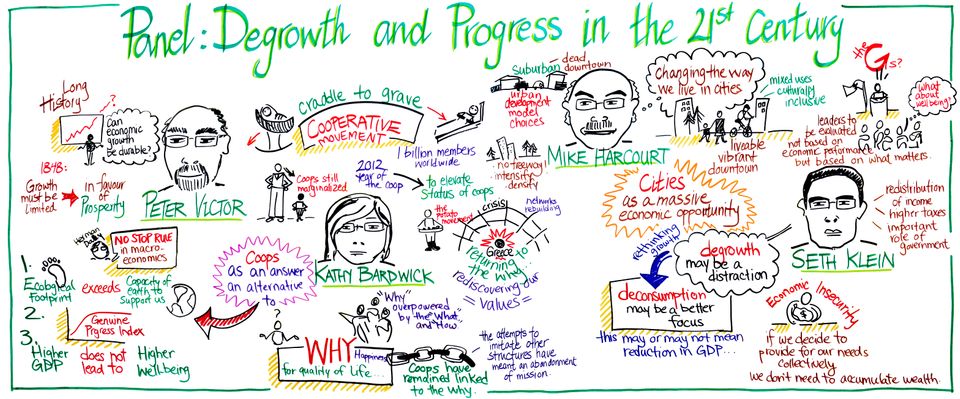 Panel: Degrowth and Progress in the 21st Century
Long
History
?
Can
economic
growth
be durable?
1848:
Growth
must be
Limited
in favour
of
Prosperity
PETER VICTOR
Herman
Daly
NO STOP RULE
in macro-
economics
1.
Ecological
Footprint
exceeds
Capacity of
earth to
support us
2.
Genuine
Prgress Index
3.
Higher
GDP
does not
lead to
Higher
Wellbeing
craddle to grave
COOPERATIVE
MOVEMENT
1 billion members
worldwide
2012
year of the coop
Coops still
marginalized
to elevate
Status of coops
KATHY BARDWICK
Coops
as an answer
an alternative
to
the
potato
movement
crisis
Greece
networks
rebuilding
returning to
the why
rediscovering our
= values =
"Why"
overpowered
by the "What"
and "How."
?
WHY
Happiness
for quality of Life...
Coops have
remained linked
to the why.
the attempts to
imitate other
structures have
meant an abandonment
of mission.
suburban
dead
downtown
urban
development
model
choices
no freeway
intensify
density
MIKE HARCOURT
changing the way
we live in cities
mixed uses
culturally
inclusive
liveable
vibrant
downtown
Cities
as a massive
economic opportunity
the
Gs?
what
about
wellbeing?
leaders to
be evaluated
not based on
economic performance
but based on what matters.
SETH KLEIN
redistribution
of income
higher taxes
important
role of
government
rethinking
growth
degrowth
may be a
distraction
deconsumption
may be a better
focus
this may or may not mean
reduction in GDP...
Economic Insecurity
$
if we decide to
provide for our needs
collectively
we don't need to accumulate wealth.